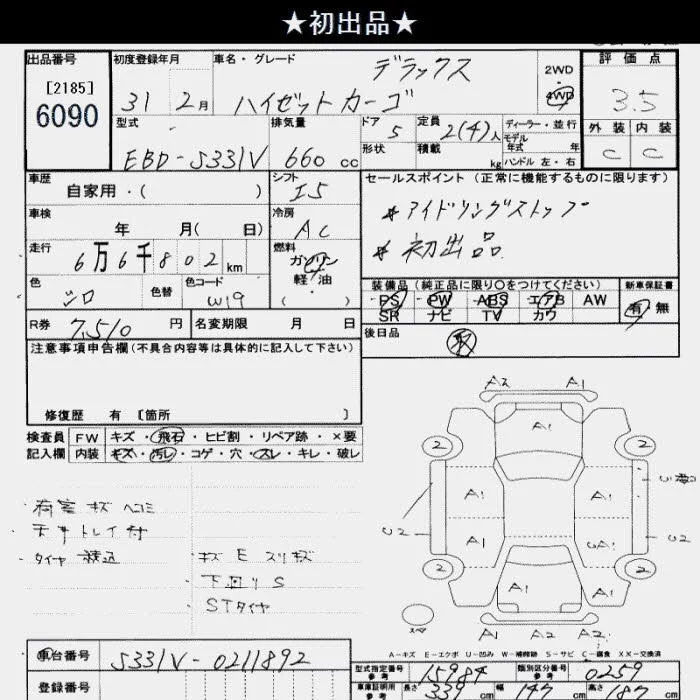 ★初出品★
出品番号 初度登録年月 車名・グレード デラックス 2WD 評価点
[2185] 4WD
6090 31 2月 ハイゼットカーゴ 3.5
型式 排気量 ドア 5 定員 2(4)人 ディーラー・並行 外装 内装
モデル年式 年
EBD-S331V 660cc 形状 積載 kg ハンドル 左・右 C C
車歴 シフト I5 セールスポイント(正常に機能するものに限ります)
自家用・( )
車検 冷房 AC *アイドリングストップ
年 月( 日)
走行 燃料 *初出品
6万6千802km ガソリン
色 色替 色コード 軽・油 装備品(純正品に限り○をつけてください) 新車保証書
シロ W19 ( ) PS PW ABS エアB AW 有 無
SR ナビ TV カワ
R券 7,510円 名変期限 月 日 後日品 取
注意事項申告欄(不具合内容等は具体的に記入して下さい)
修復歴 有 [箇所 ]
検査員 FW キズ・飛石・ヒビ割・リペア跡・×要
記入欄 内装 キズ・汚レ・コゲ・穴・スレ・キレ・破レ
・荷室 キズ ヘコミ
・天井トレイ付
・タイヤ 積込 ・キズ E スリキズ
・下回り S
・STタイヤ
A2 A1
A1
2 2
A1 A1
U2 U2
A1
2 2
A1 A1
スペア A1 A2 A2
A-キズ E-エクボ U-凹み W-補修跡 S-サビ C-腐食 XX-交換済
車台番号 S331V-0211892 型式指定番号 参考 15984 類別区分番号 参考 0259
登録番号 車庫証明用 参考 長さ 339cm 幅 147cm 高さ 187cm